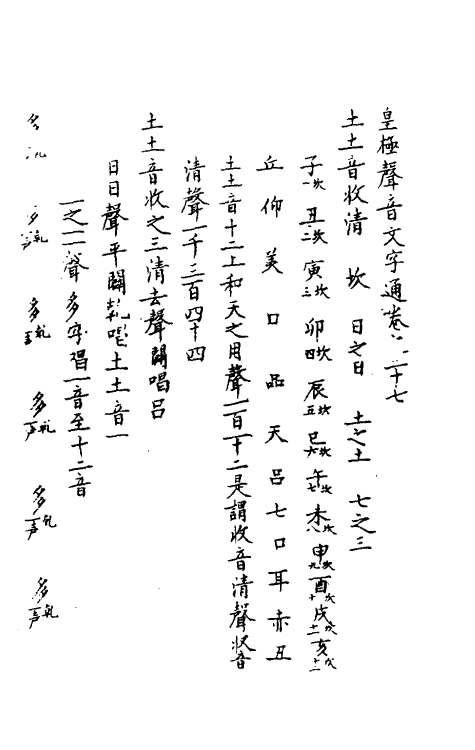 皇極聲音文字通卷之二十七
土土音收清 坎 日之日 土之土 七之三
子一坎 丑二坎 寅三坎 卯四坎 辰五坎 巳六坎 午七坎 未八坎 申九坎 酉十坎 戌十一坎 亥十二坎
丘 仰 美 口 品 天 呂 七 口 耳 赤 丑
土土音十二上和天之用聲一百一十二是謂收音清聲收音
清聲一千三百四十四
土土音收之三清去聲闢唱呂
日日聲平闢乾唱土土音一
一之一聲多字唱一音至十二音
多 多一聲乾 多一聲乾 多一聲乾 多一聲乾 多一聲乾